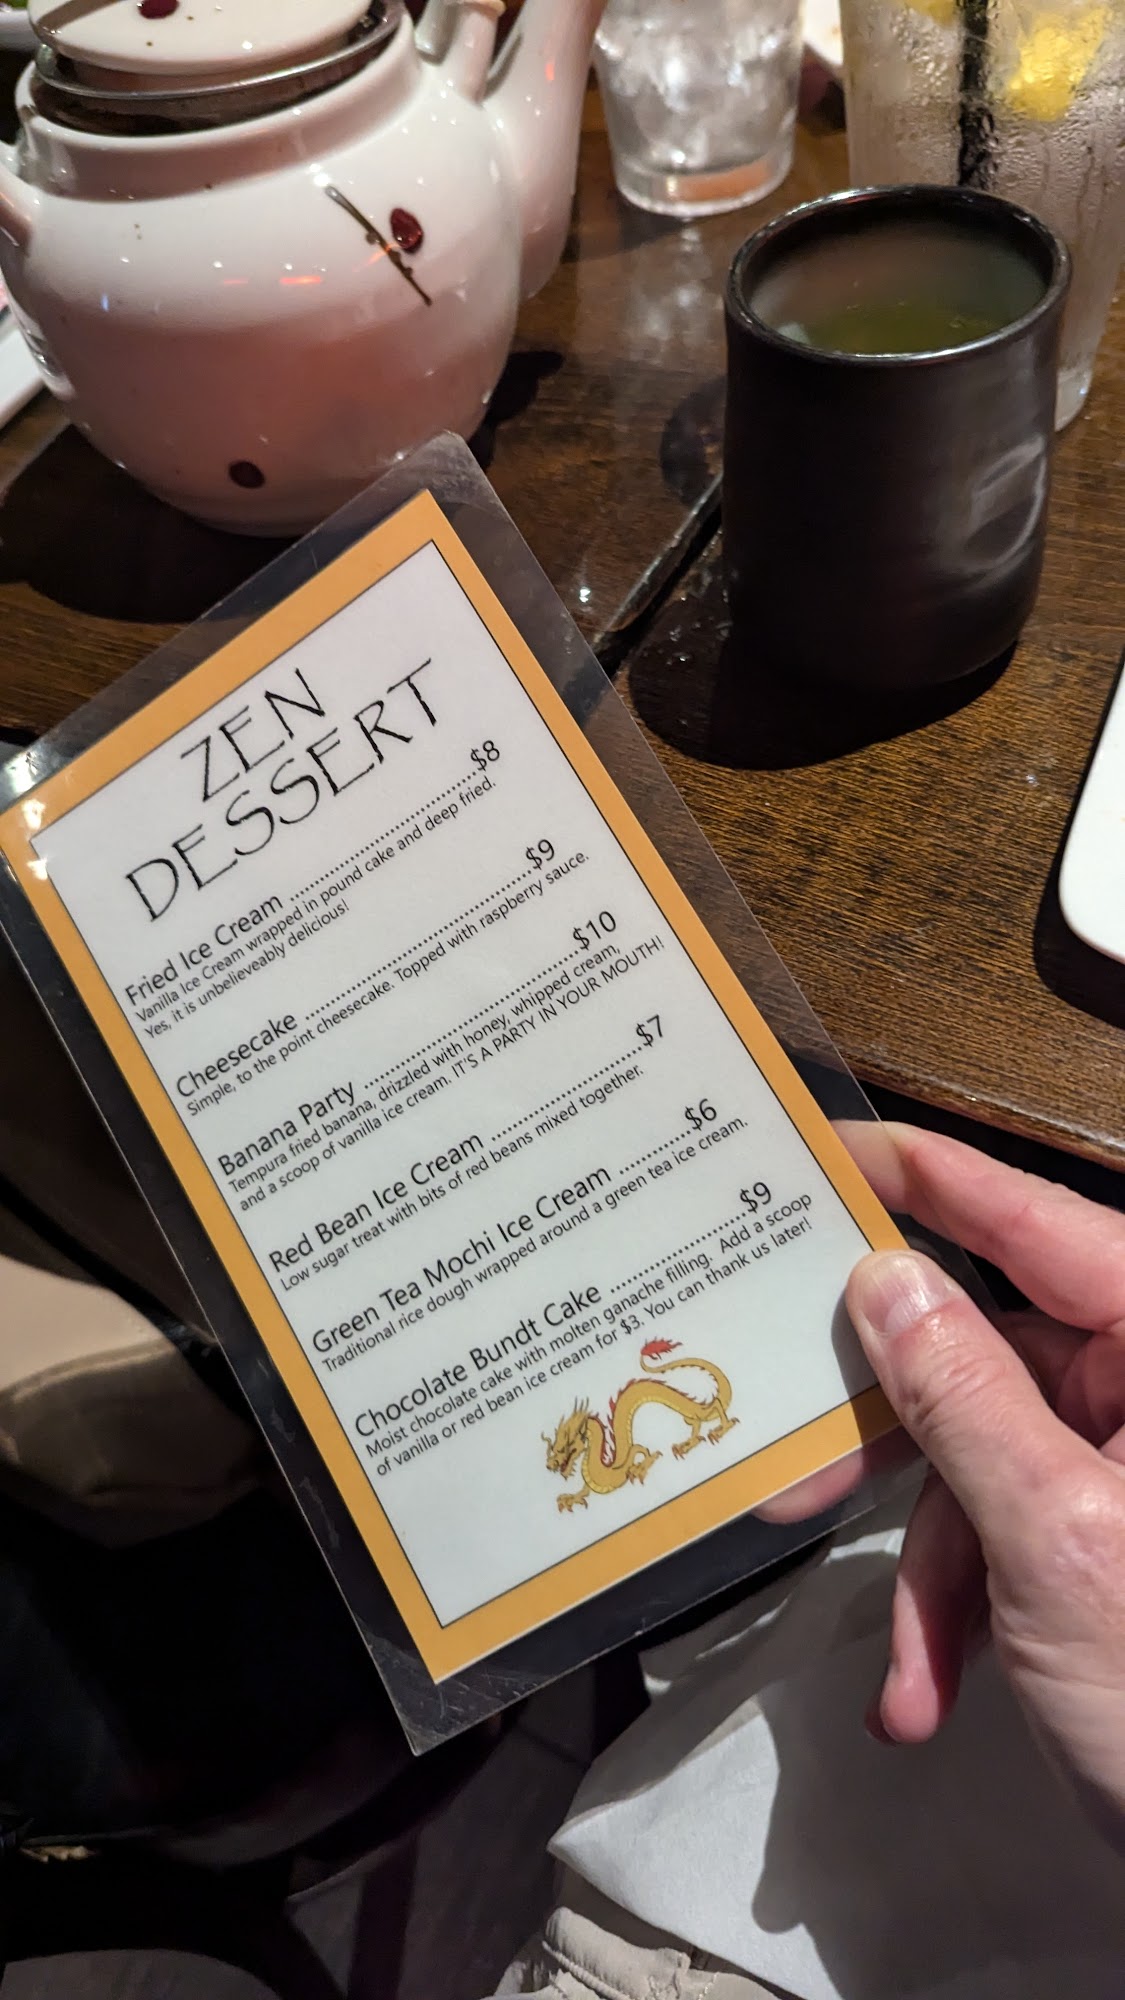 ZEN
DESSERT
Fried Ice Cream ........................... $8
Vanilla Ice Cream wrapped in pound cake and deep fried.
Yes, it is unbelieveably delicious!
Cheesecake ................................ $9
Simple, to the point cheesecake. Topped with raspberry sauce.
Banana Party .............................. $10
Tempura fried banana, drizzled with honey, whipped cream,
and a scoop of vanilla ice cream. IT'S A PARTY IN YOUR MOUTH!
Red Bean Ice Cream .................... $7
Low sugar treat with bits of red beans mixed together.
Green Tea Mochi Ice Cream .......... $6
Traditional rice dough wrapped around a green tea ice cream.
Chocolate Bundt Cake ................. $9
Moist chocolate cake with molten ganache filling. Add a scoop
of vanilla or red bean ice cream for $3. You can thank us later!